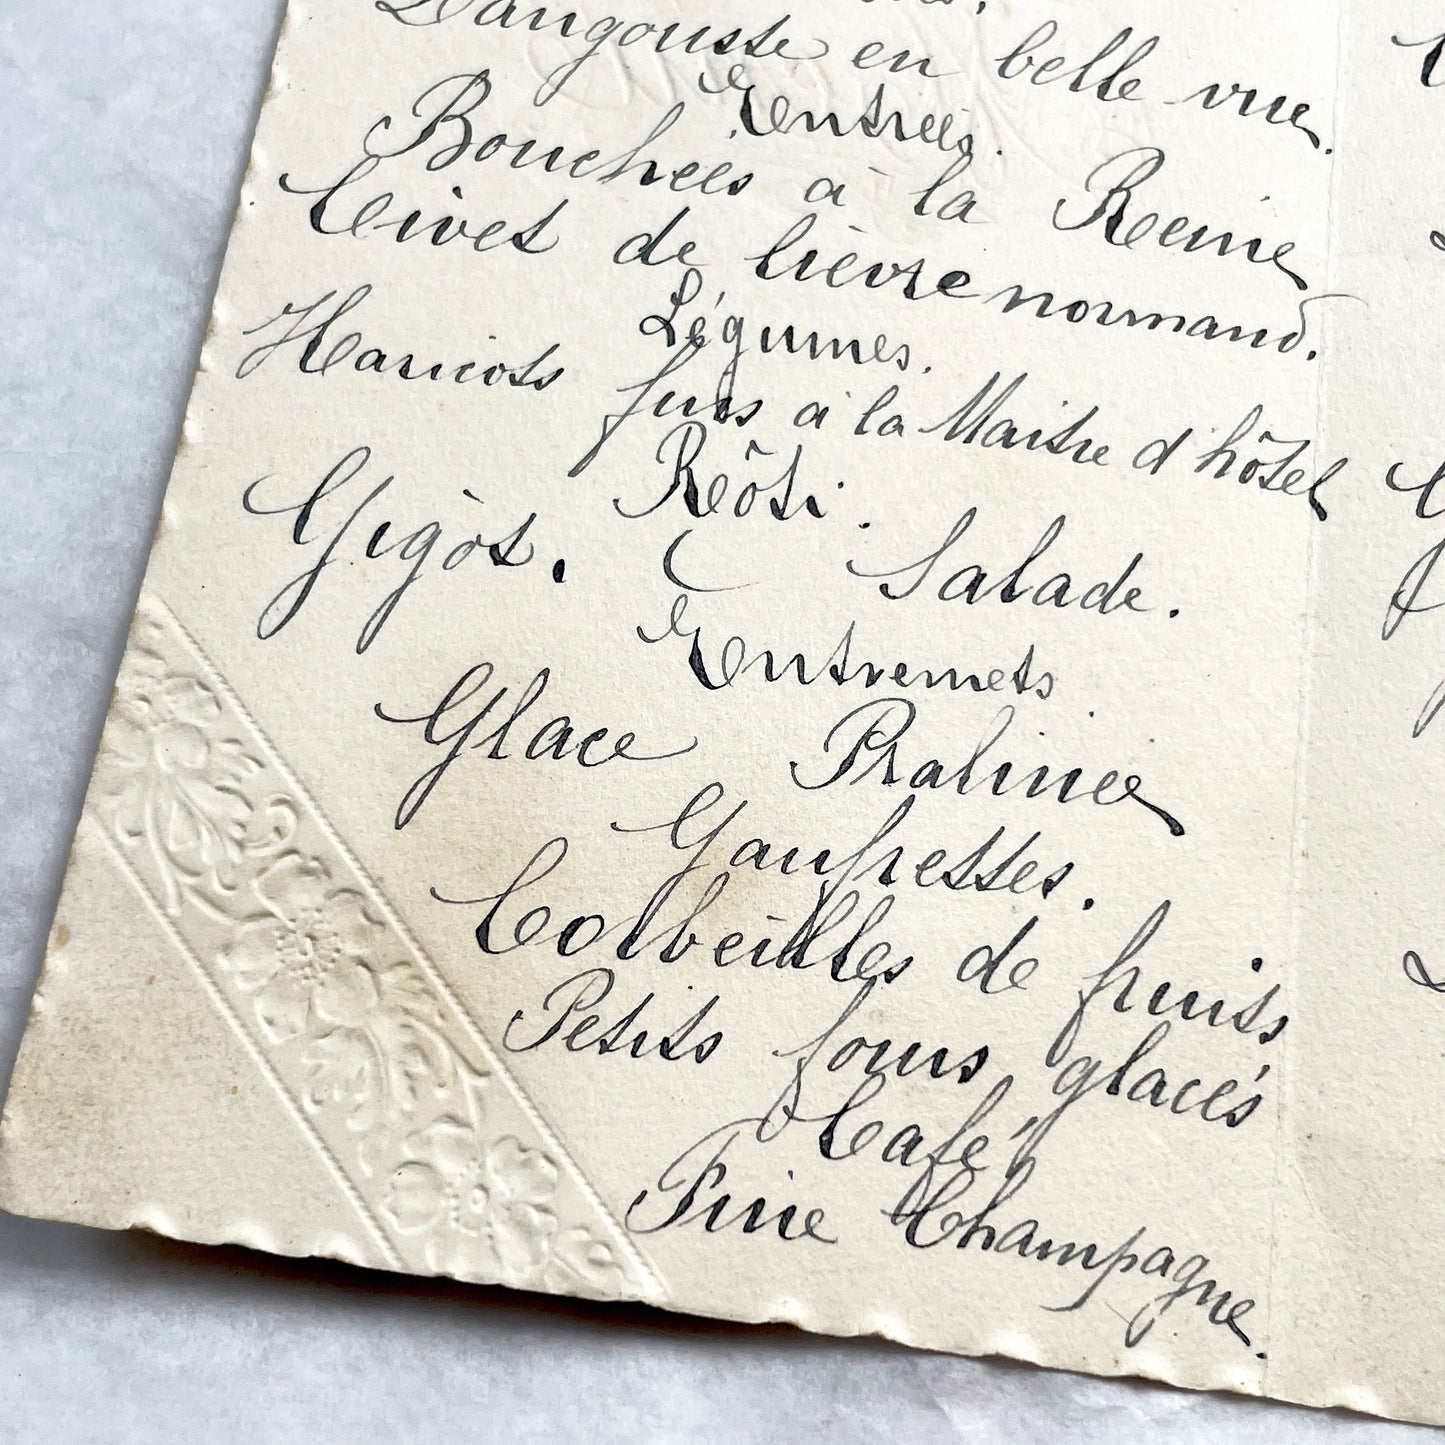 Langouste en belle vue.
Entrées.
Bouchées à la Reine
Civet de lièvre normand.
Légumes.
Haricots fins à la Maitre d'hôtel
Rôti.
Gigòt. Salade.
Entremets.
Glace Pralinée
Gaufrettes.
Corbeilles de fruits
Petits fours glacés
Café
Fine Champagne.